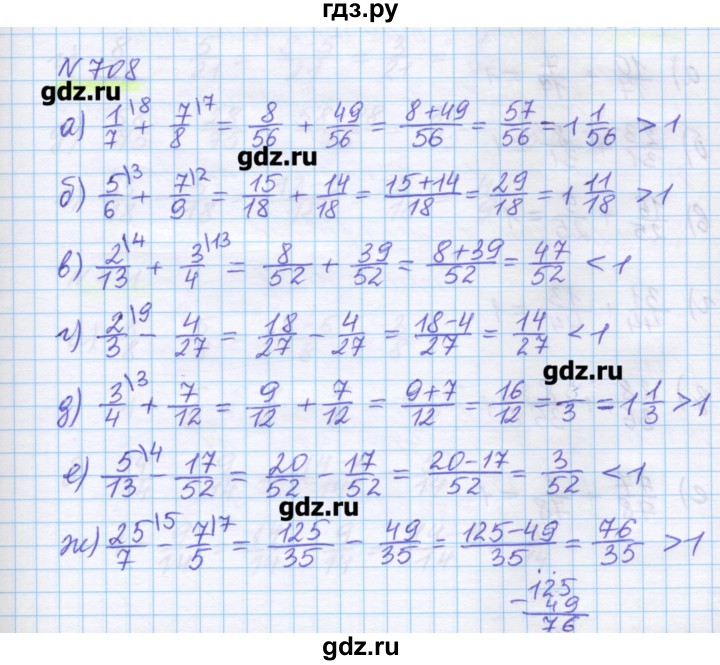 гдз.ру
№ 708
gdz.ru
а) 1/7\8 + 7/8\7 = 8/56 + 49/56 = (8+49)/56 = 57/56 = 1 1/56 > 1
gdz.ru
б) 5/6\3 + 7/9\2 = 15/18 + 14/18 = (15+14)/18 = 29/18 = 1 11/18 > 1
в) 2/13\4 + 3/4\13 = 8/52 + 39/52 = (8+39)/52 = 47/52 < 1
г) 2/3\9 - 4/27 = 18/27 - 4/27 = (18-4)/27 = 14/27 < 1
gdz.ru
д) 3/4\3 + 7/12 = 9/12 + 7/12 = (9+7)/12 = 16/12 = /3 = 1 1/3 > 1
е) 5/13\4 - 17/52 = 20/52 - 17/52 = (20-17)/52 = 3/52 < 1
gdz.ru
ж) 25/7\5 - 7/5\7 = 125/35 - 49/35 = (125-49)/35 = 76/35 > 1
125
- 49
76
gdz.ru